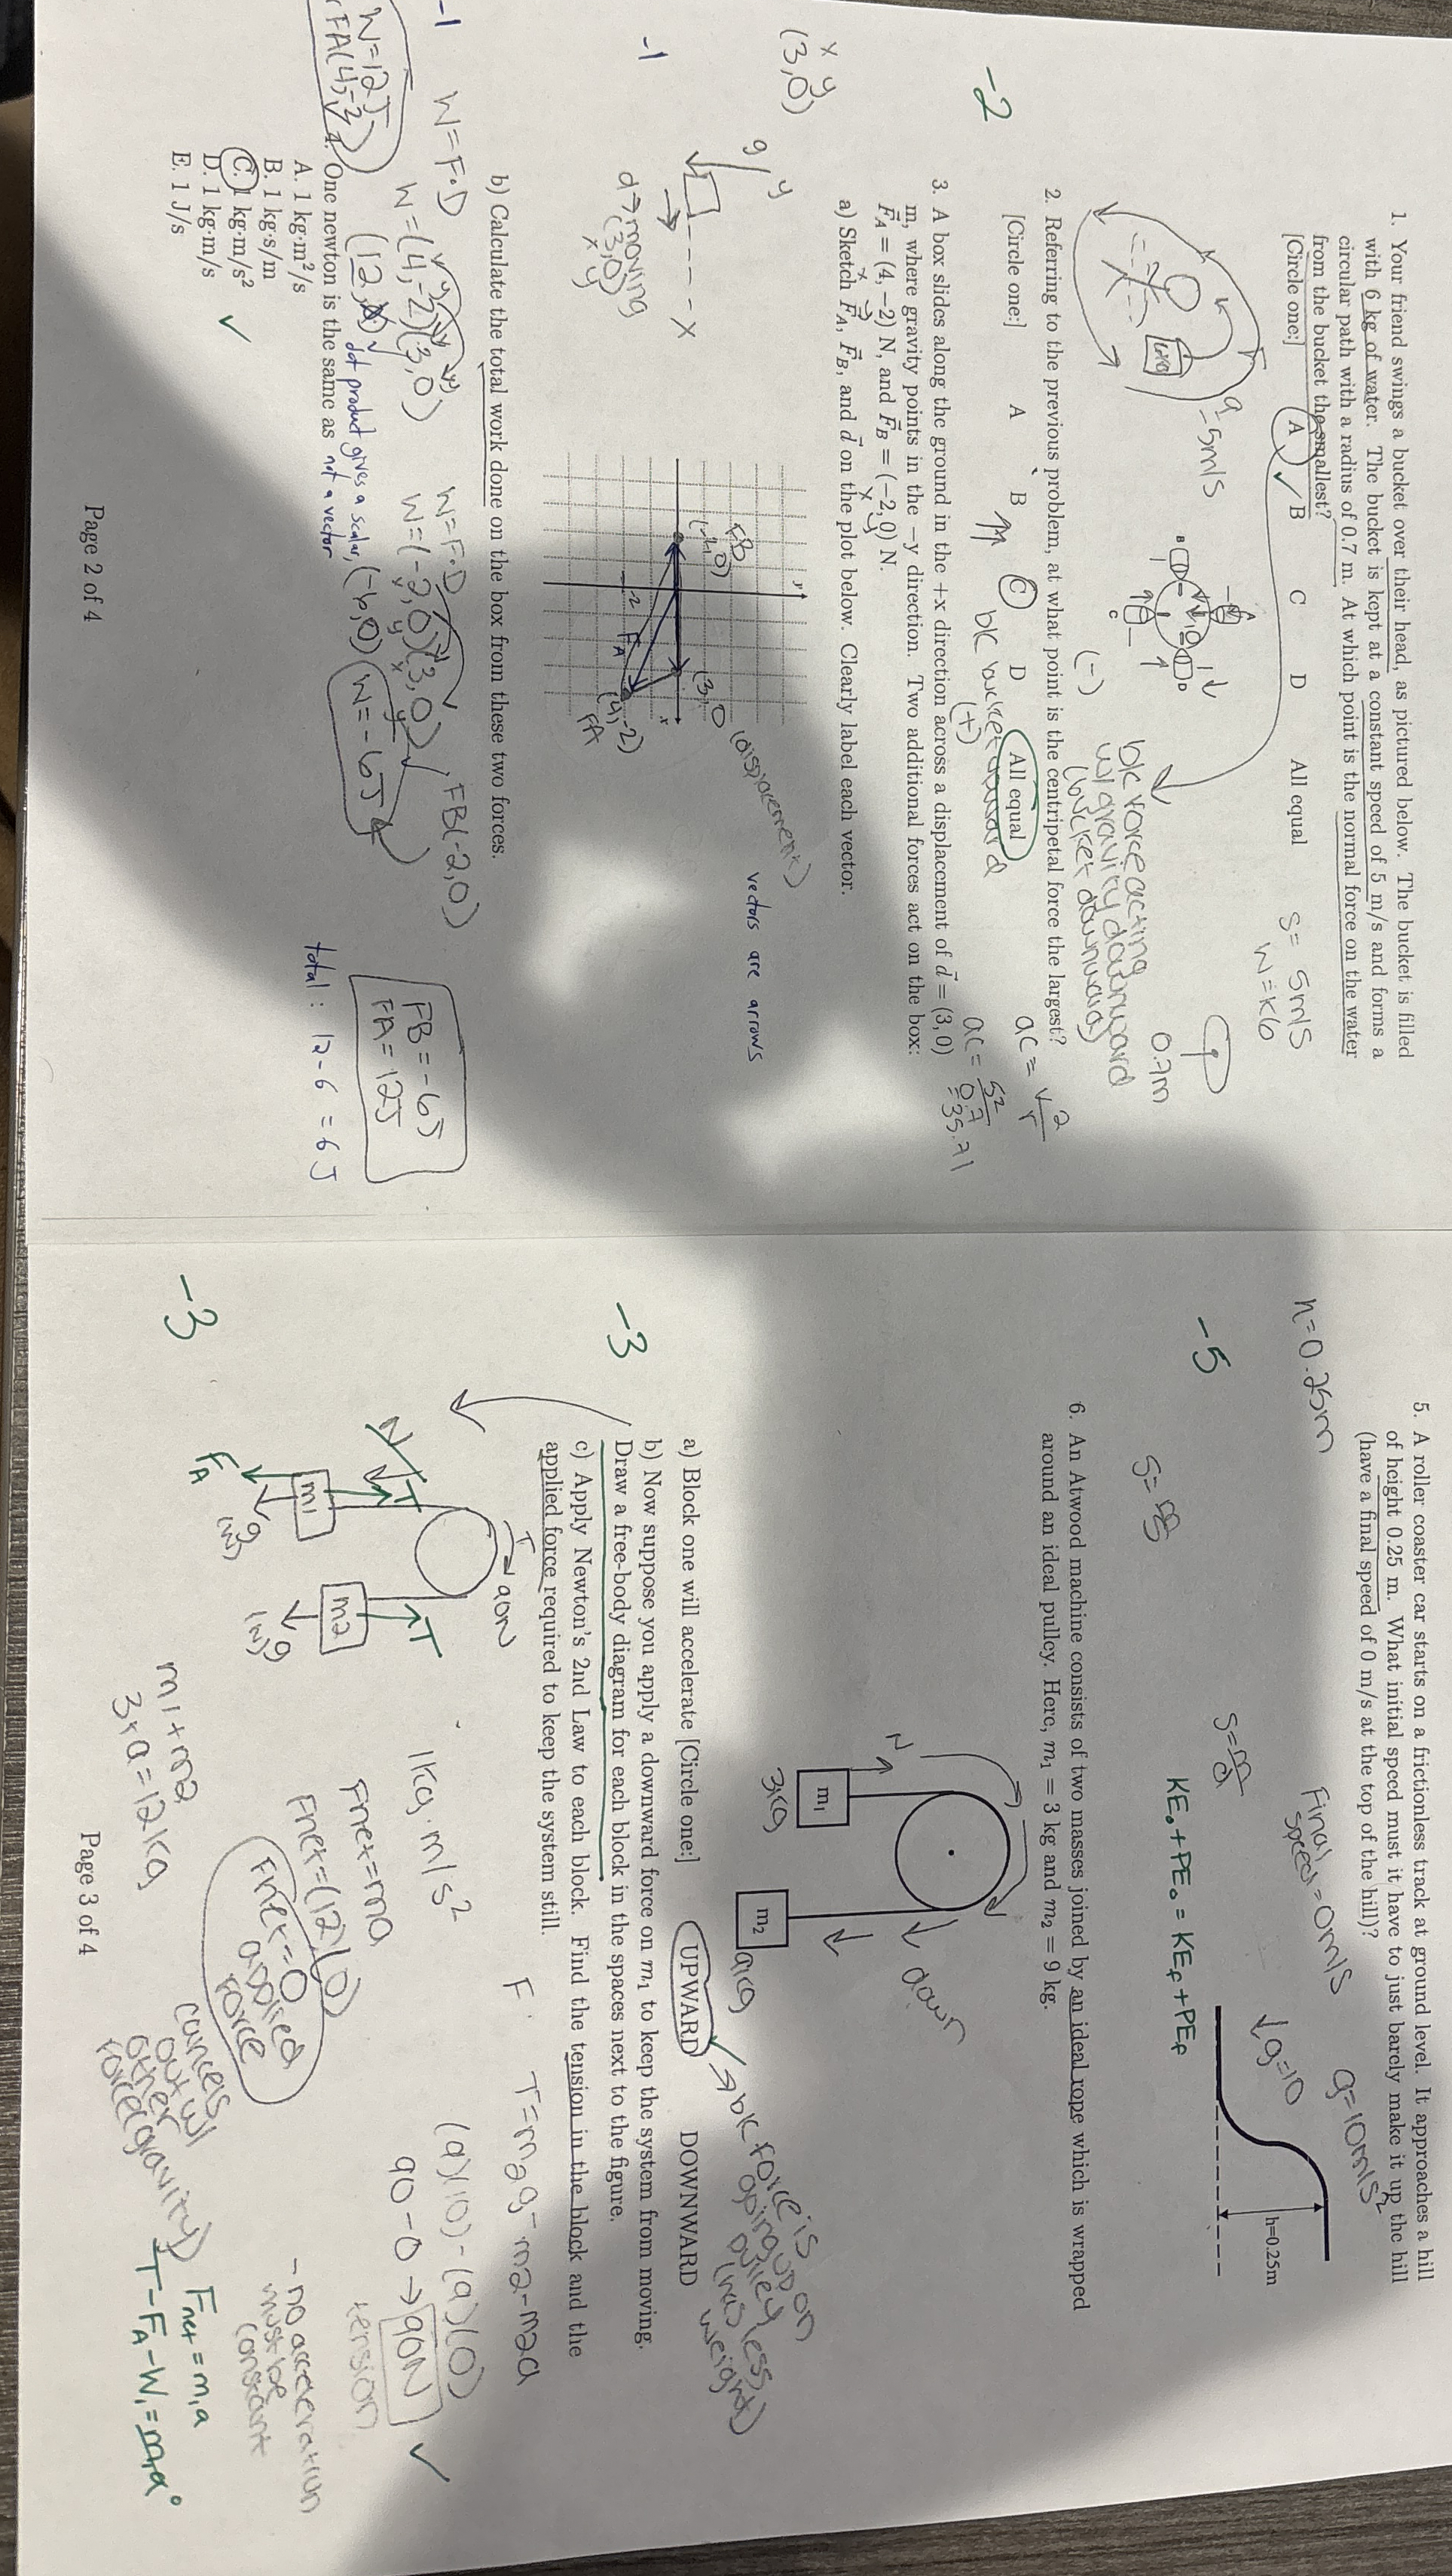 1. Your friend swings a bucket over their head, as pictured below. The bucket is filled
with 6 kg of water. The bucket is kept at a constant speed of 5 m/s and forms a
circular path with a radius of 0.7 m. At which point is the normal force on the water
from the bucket the smallest?
[Circle one:] A B C D All equal
s = 5m/s
W = K6
0.7m
5m/s
A
B
C
D
bk force acting
w/ gravity downward
(bucket downward)
(-)
2. Referring to the previous problem, at what point is the centripetal force the largest?
[Circle one:] A B C D All equal
-2
bk bucket upward
(+)
ac = v²/r
ac = 5²/0.7
= 35.71
3. A box slides along the ground in the +x direction across a displacement of d⃗ = (3, 0)
m, where gravity points in the −y direction. Two additional forces act on the box:
F⃗A = (4, −2) N, and F⃗B = (−2, 0) N.
x y
(3,0)
a) Sketch F⃗A, F⃗B, and d⃗ on the plot below. Clearly label each vector.
-1
g
y
x
d→ moving
(3,0)
x y
FB
(-2,0)
(3,0)
(displacement)
-2
FA
(4,-2)
FA
y
x
vectors are arrows
b) Calculate the total work done on the box from these two forces.
-1
W=F·D
W=(4,-2)(3,0)
(12,0)
W=12J
FA(4,-2)
dot product gives a scalar,
not a vector
W=F·D
W=(-2,0)(3,0)
(-6,0)
W=-6J
FB(-2,0)
FB = -6J
FA = 12J
total: 12 - 6 = 6 J
4. One newton is the same as
A. 1 kg·m²/s
B. 1 kg·s/m
C. 1 kg·m/s²
D. 1 kg·m/s
E. 1 J/s
✓
Page 2 of 4
5. A roller coaster car starts on a frictionless track at ground level. It approaches a hill
of height 0.25 m. What initial speed must it have to just barely make it up the hill
(have a final speed of 0 m/s at the top of the hill)?
h=0.25m
Final
speed = 0m/s
g=10m/s²
↓g=10
h=0.25m
-5
KE₀ + PE₀ = KEf + PEf
6. An Atwood machine consists of two masses joined by an ideal rope which is wrapped
around an ideal pulley. Here, m₁ = 3 kg and m₂ = 9 kg.
N
m₁
3kg
m₂
9kg
down
a) Block one will accelerate [Circle one:] UPWARD DOWNWARD
→ bk force is
going up on
pulley
(has less
weight)
b) Now suppose you apply a downward force on m₁ to keep the system from moving.
Draw a free-body diagram for each block in the spaces next to the figure.
-3
c) Apply Newton's 2nd Law to each block. Find the tension in the block and the
applied force required to keep the system still.
T
90N
N
T
m1
FA
g
(W)
T
m2
g
(W)
-3
m1+m2
3+9=12kg
1kg·m/s²
Fnet=ma
Fnet=(12)(0)
Fnet=0
applied
force
cancels
out w/
other
force(gravity)
F
T=m2g-m2-m2a
(9)(10)-(9)(0)
90-0→90N ✓
tension
-no acceleration
must be
constant
Fnet = m₁a
T - FA - W₁ = m₁a⁰
Page 3 of 4